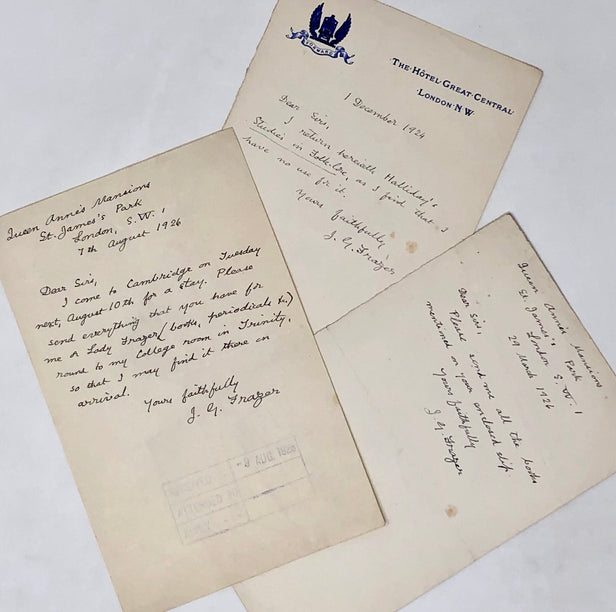 FORWARD
THE·HÔTEL·GREAT·CENTRAL
LONDON·N W
1 December 1924
Dear Sirs,
I return herewith Halliday's
Studies in Folk-lore, as I find that I
have no use for it.
Yours faithfully
J. G. Frazer
Queen Anne's Mansions
St. James's Park
London, S.W. 1
7th August 1926
Dear Sirs,
I come to Cambridge on Tuesday
next, August 10th for a stay. Please
send everything that you have for
me or Lady Frazer (books, periodicals &c)
round to my College room in Trinity,
so that I may find it there on
arrival.
Yours faithfully
J. G. Frazer
AUG 1926
Queen Anne's Mansions
St. James's Park
London S. W. 1
29 March 1926
Dear Sirs,
Please send me all the books
mentioned on your enclosed slip.
Yours faithfully
J. G. Frazer